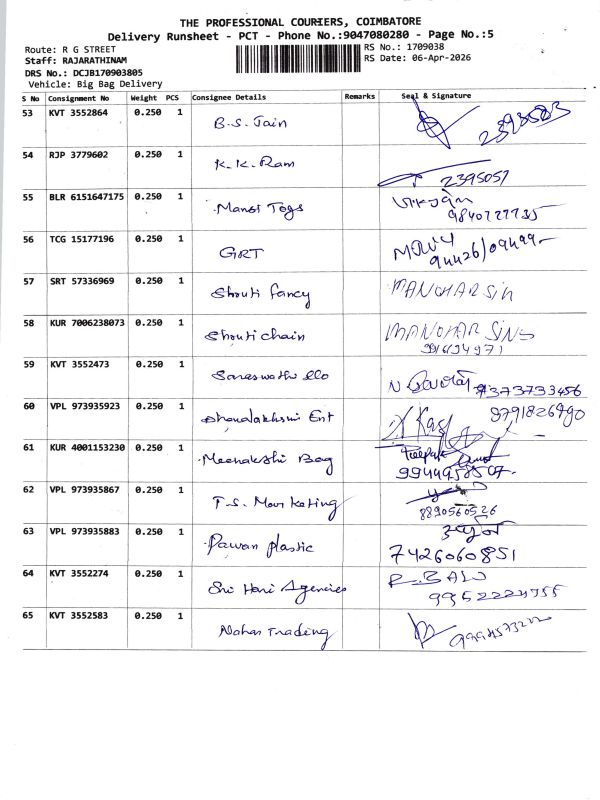 THE PROFESSIONAL COURIERS, COIMBATORE
Delivery Runsheet - PCT - Phone No.:9047080280 - Page No.:5
Route: R G STREET
RS No.: 1709038
Staff: RAJARATHINAM
RS Date: 06-Apr-2026
DRS No.: DCJB170903805
Vehicle: Big Bag Delivery
S No Consignment No Weight PCS Consignee Details Remarks Seal & Signature
53 KVT 3552864 0.250 1 B.S. Jain
54 RJP 3779602 0.250 1 K.K. Ram 2395057
55 BLR 6151647175 0.250 1 Manoj Togs
56 TCG 15177196 0.250 1 GRT
57 SRT 57336969 0.250 1 Shruti fancy MANOHAR Sin
58 KUR 7006238073 0.250 1 Shruti chain MANOHAR SINS
59 KVT 3552473 0.250 1 Saraswathi 7373733456
60 VPL 973935923 0.250 1 Dhanalakshmi Ent 9791826790
61 KUR 4001153230 0.250 1 Meenakshi Bag Deepak
9944958507
62 VPL 973935867 0.250 1 T.S. Marketing
8890560526
63 VPL 973935883 0.250 1 Pawan plastic
7426060851
64 KVT 3552274 0.250 1 Sri Hari Agencies R. BALU
65 KVT 3552583 0.250 1 Nahar Trading